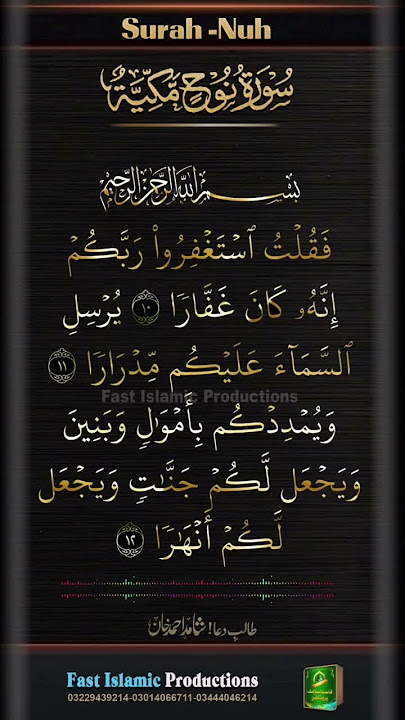 Surah -Nuh
سُوْرَةُ نُوْحٍ مَّكِّيَّةٌ
بِسْمِ اللهِ الرَّحْمٰنِ الرَّحِيْمِ
فَقُلۡتُ ٱسۡتَغۡفِرُواْ رَبَّكُمۡ
إِنَّهُۥ كَانَ غَفَّارٗا ١٠ يُرۡسِلِ
ٱلسَّمَآءَ عَلَيۡكُم مِّدۡرَارٗا ١١
Fast Islamic Productions
وَيُمۡدِدۡكُم بِأَمۡوَٰلٖ وَبَنِينَ
وَيَجۡعَل لَّكُمۡ جَنَّٰتٖ وَيَجۡعَل
لَّكُمۡ أَنۡهَٰرٗا ١٢
طالب دعا! شاہد احمد خان
Fast Islamic Productions
03229439214-03014066711-03444046214